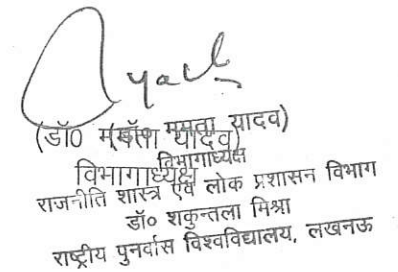 (डॉ० ममता यादव)
(डॉ० ममता यादव)
विभागाध्यक्ष
विभागाध्यक्ष
राजनीति शास्त्र एवं लोक प्रशासन विभाग
डॉ० शकुन्तला मिश्रा
राष्ट्रीय पुनर्वास विश्वविद्यालय, लखनऊ